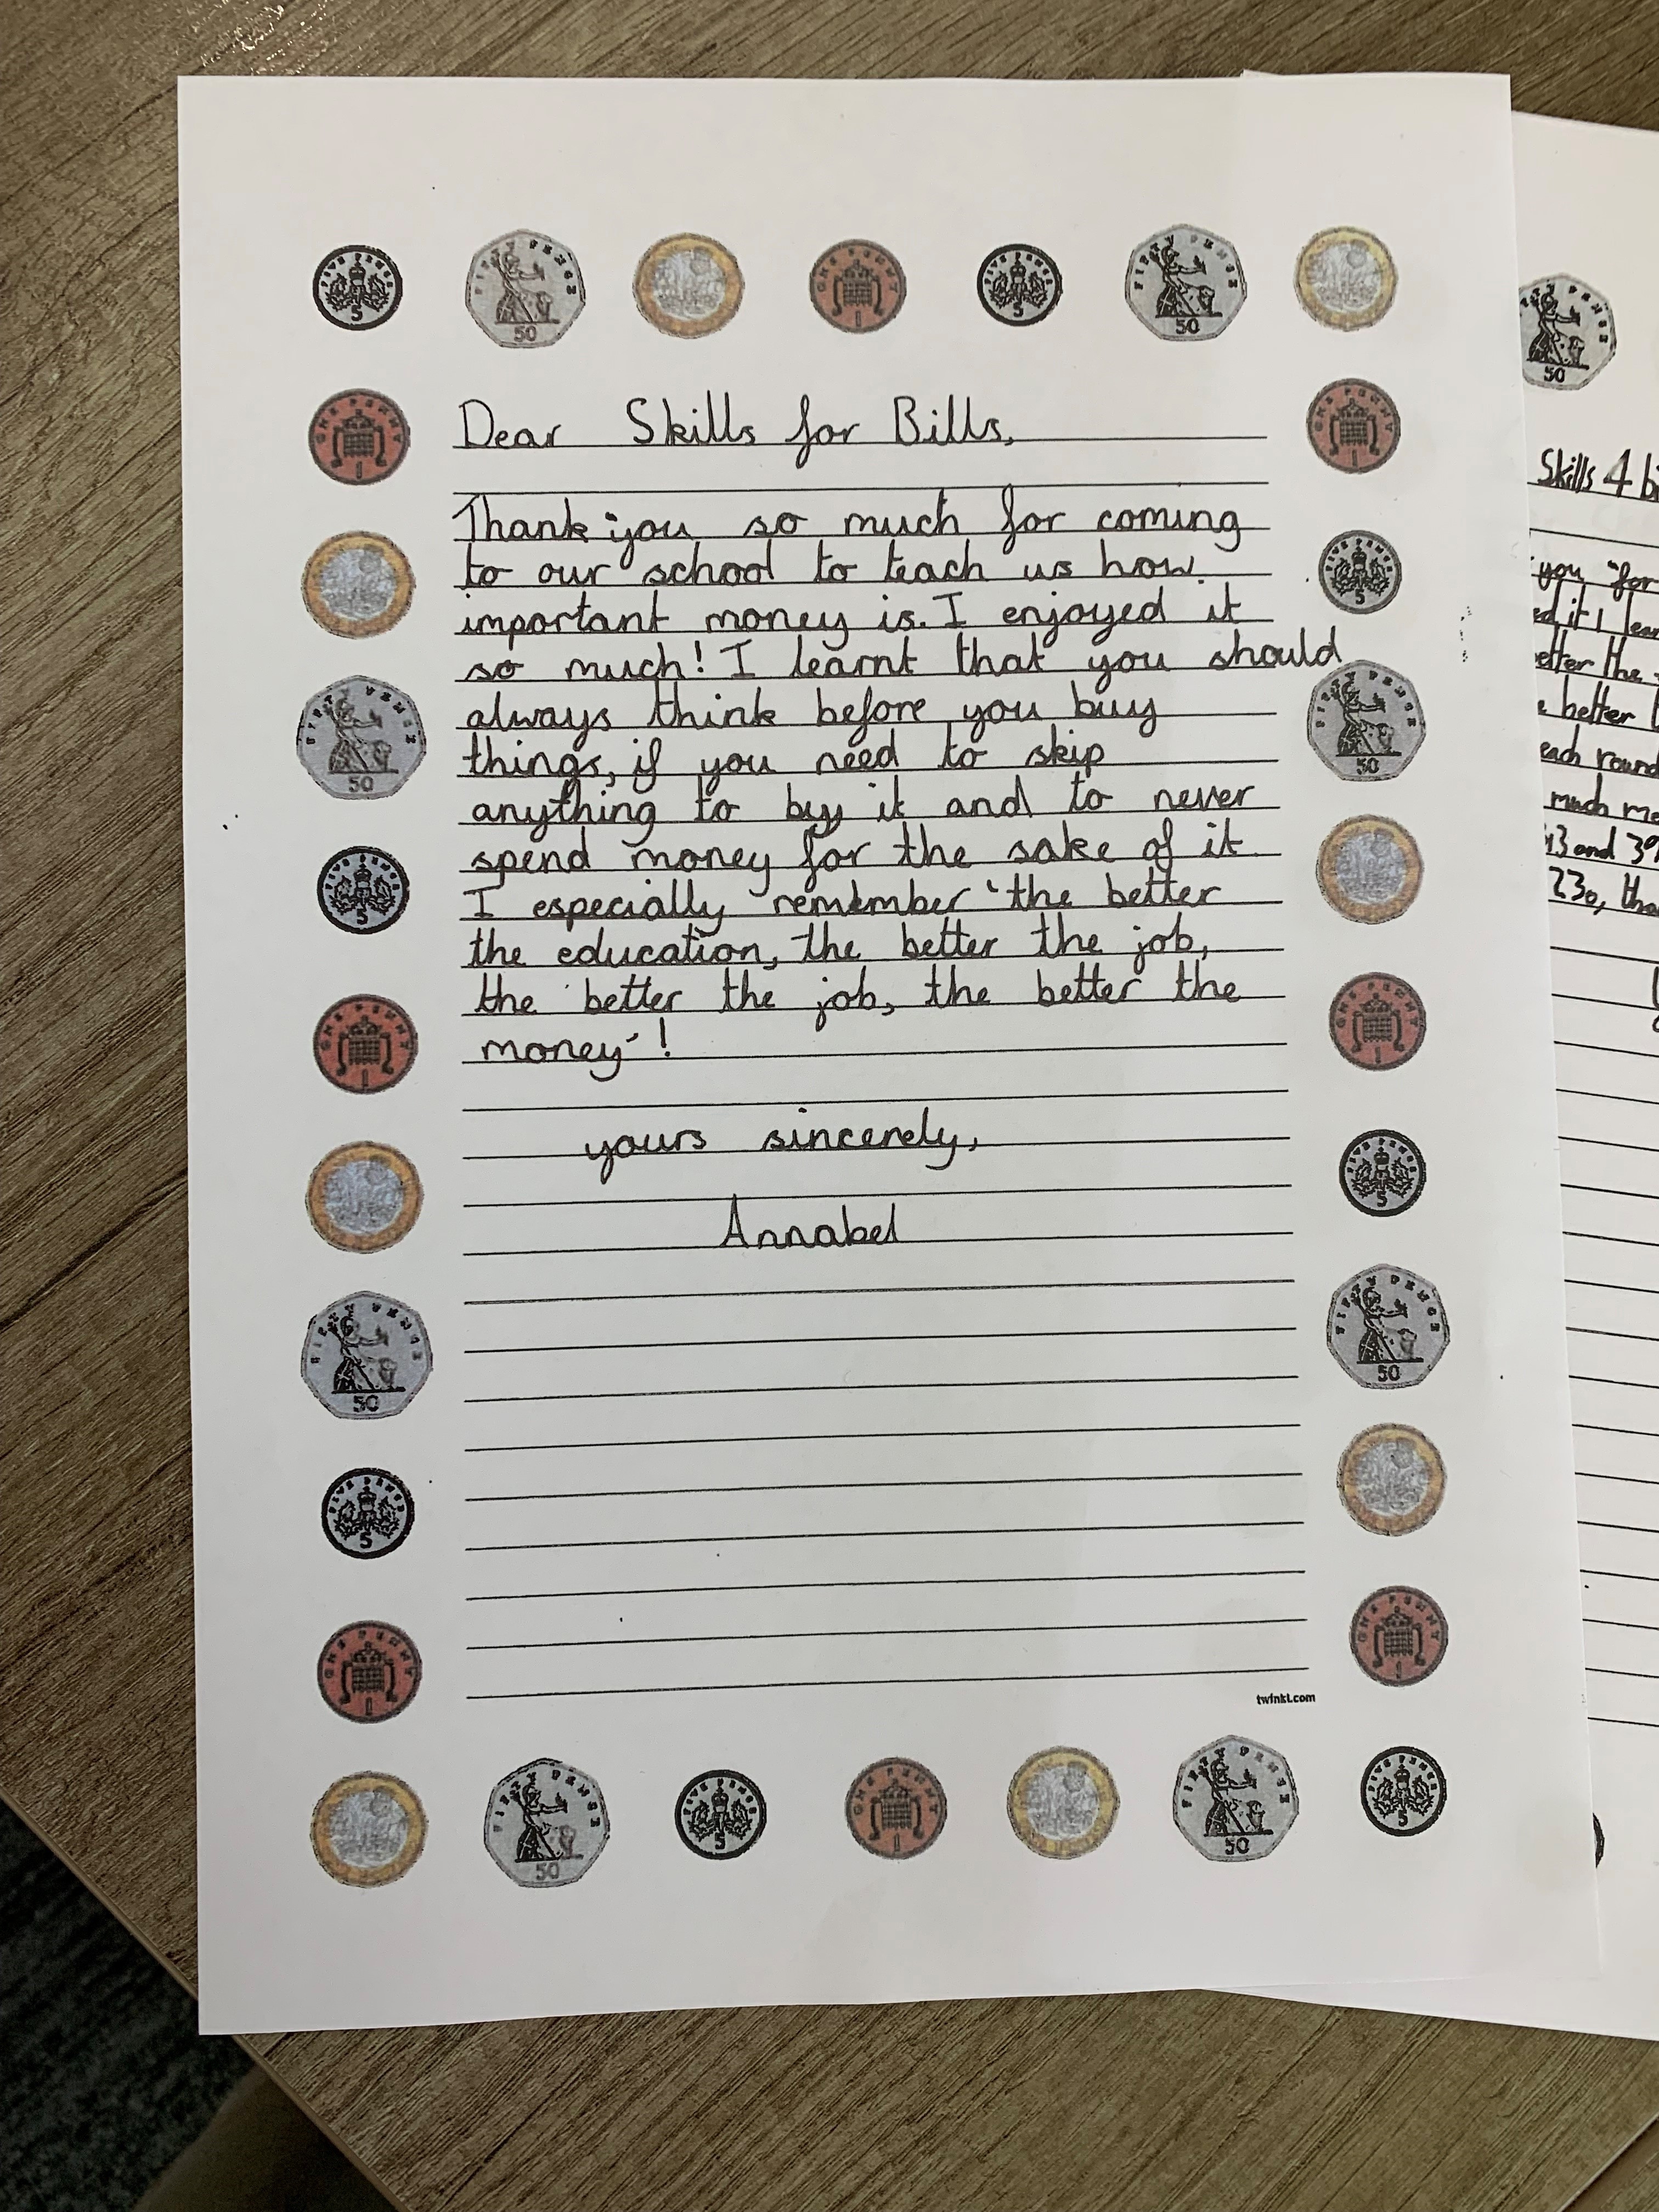 Dear Skills for Bills,
Thank you so much for coming
to our school to teach us how
important money is. I enjoyed it
so much! I learnt that you should
always think before you buy
things, if you need to skip
anything to buy it and to never
spend money for the sake of it.
I especially remember 'the better
the education, the better the job,
the better the job, the better the
money'!
yours sincerely,
Annabel
twinkl.com
Skills 4
you for
it I
better the
better
each round
much
13 and
230,
FIVE PENCE
5
FIFTY PENCE
50
ONE PENNY
1
FIVE PENCE
5
FIFTY PENCE
50